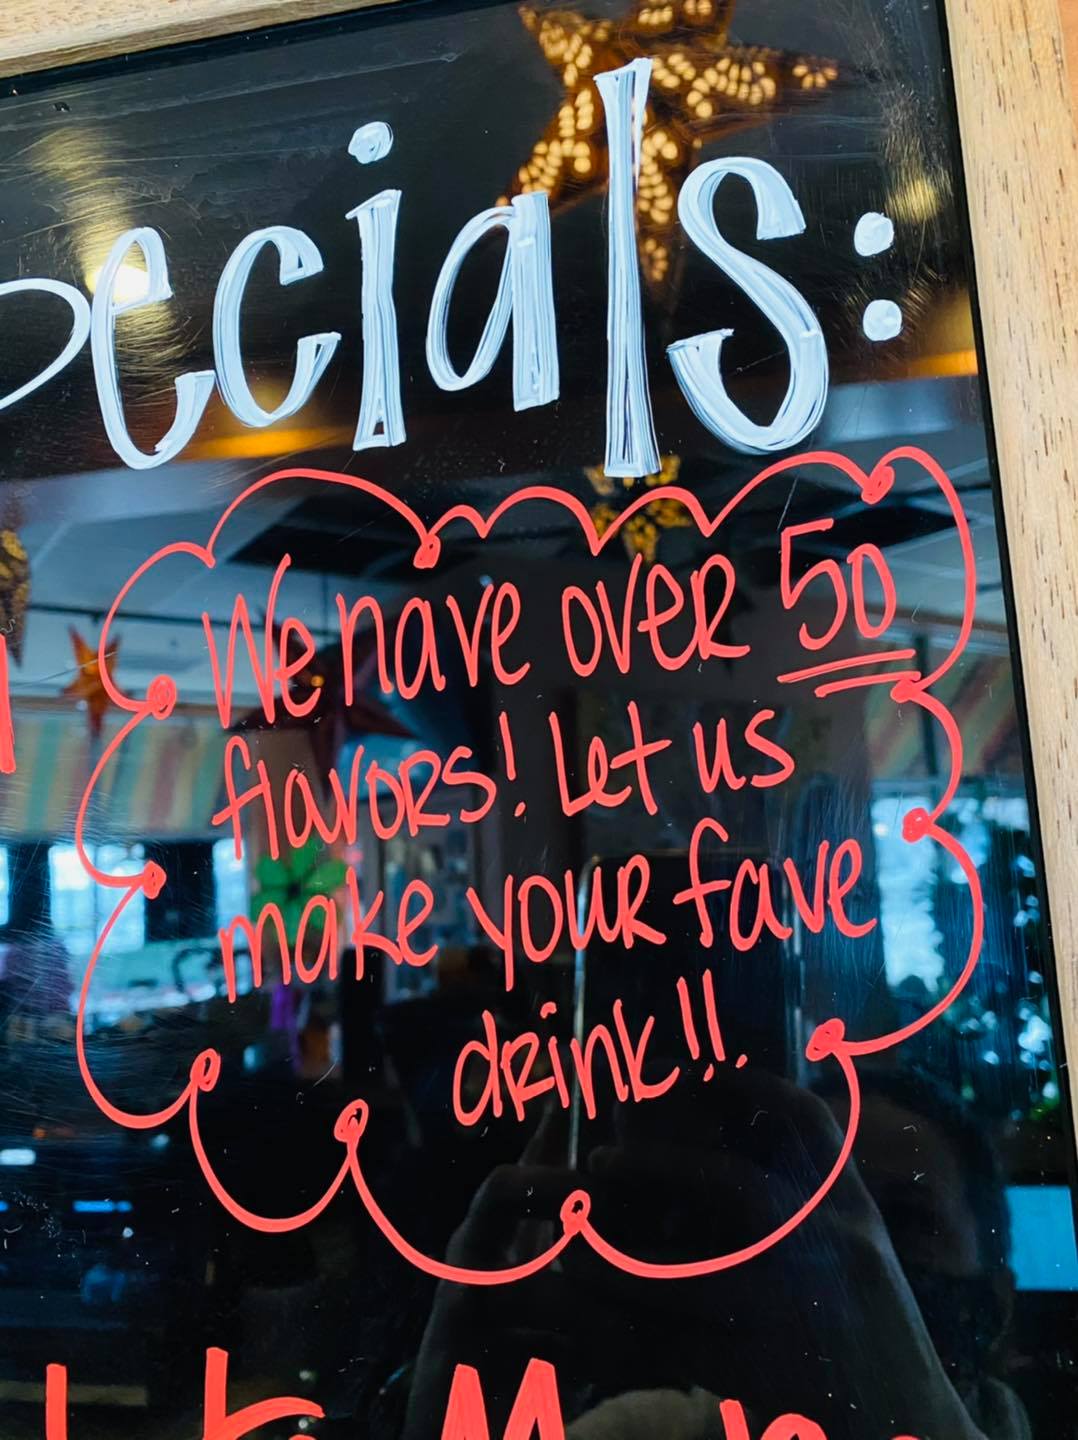 pecials:
We have over 50
flavors! Let us
make your fave
drink!!